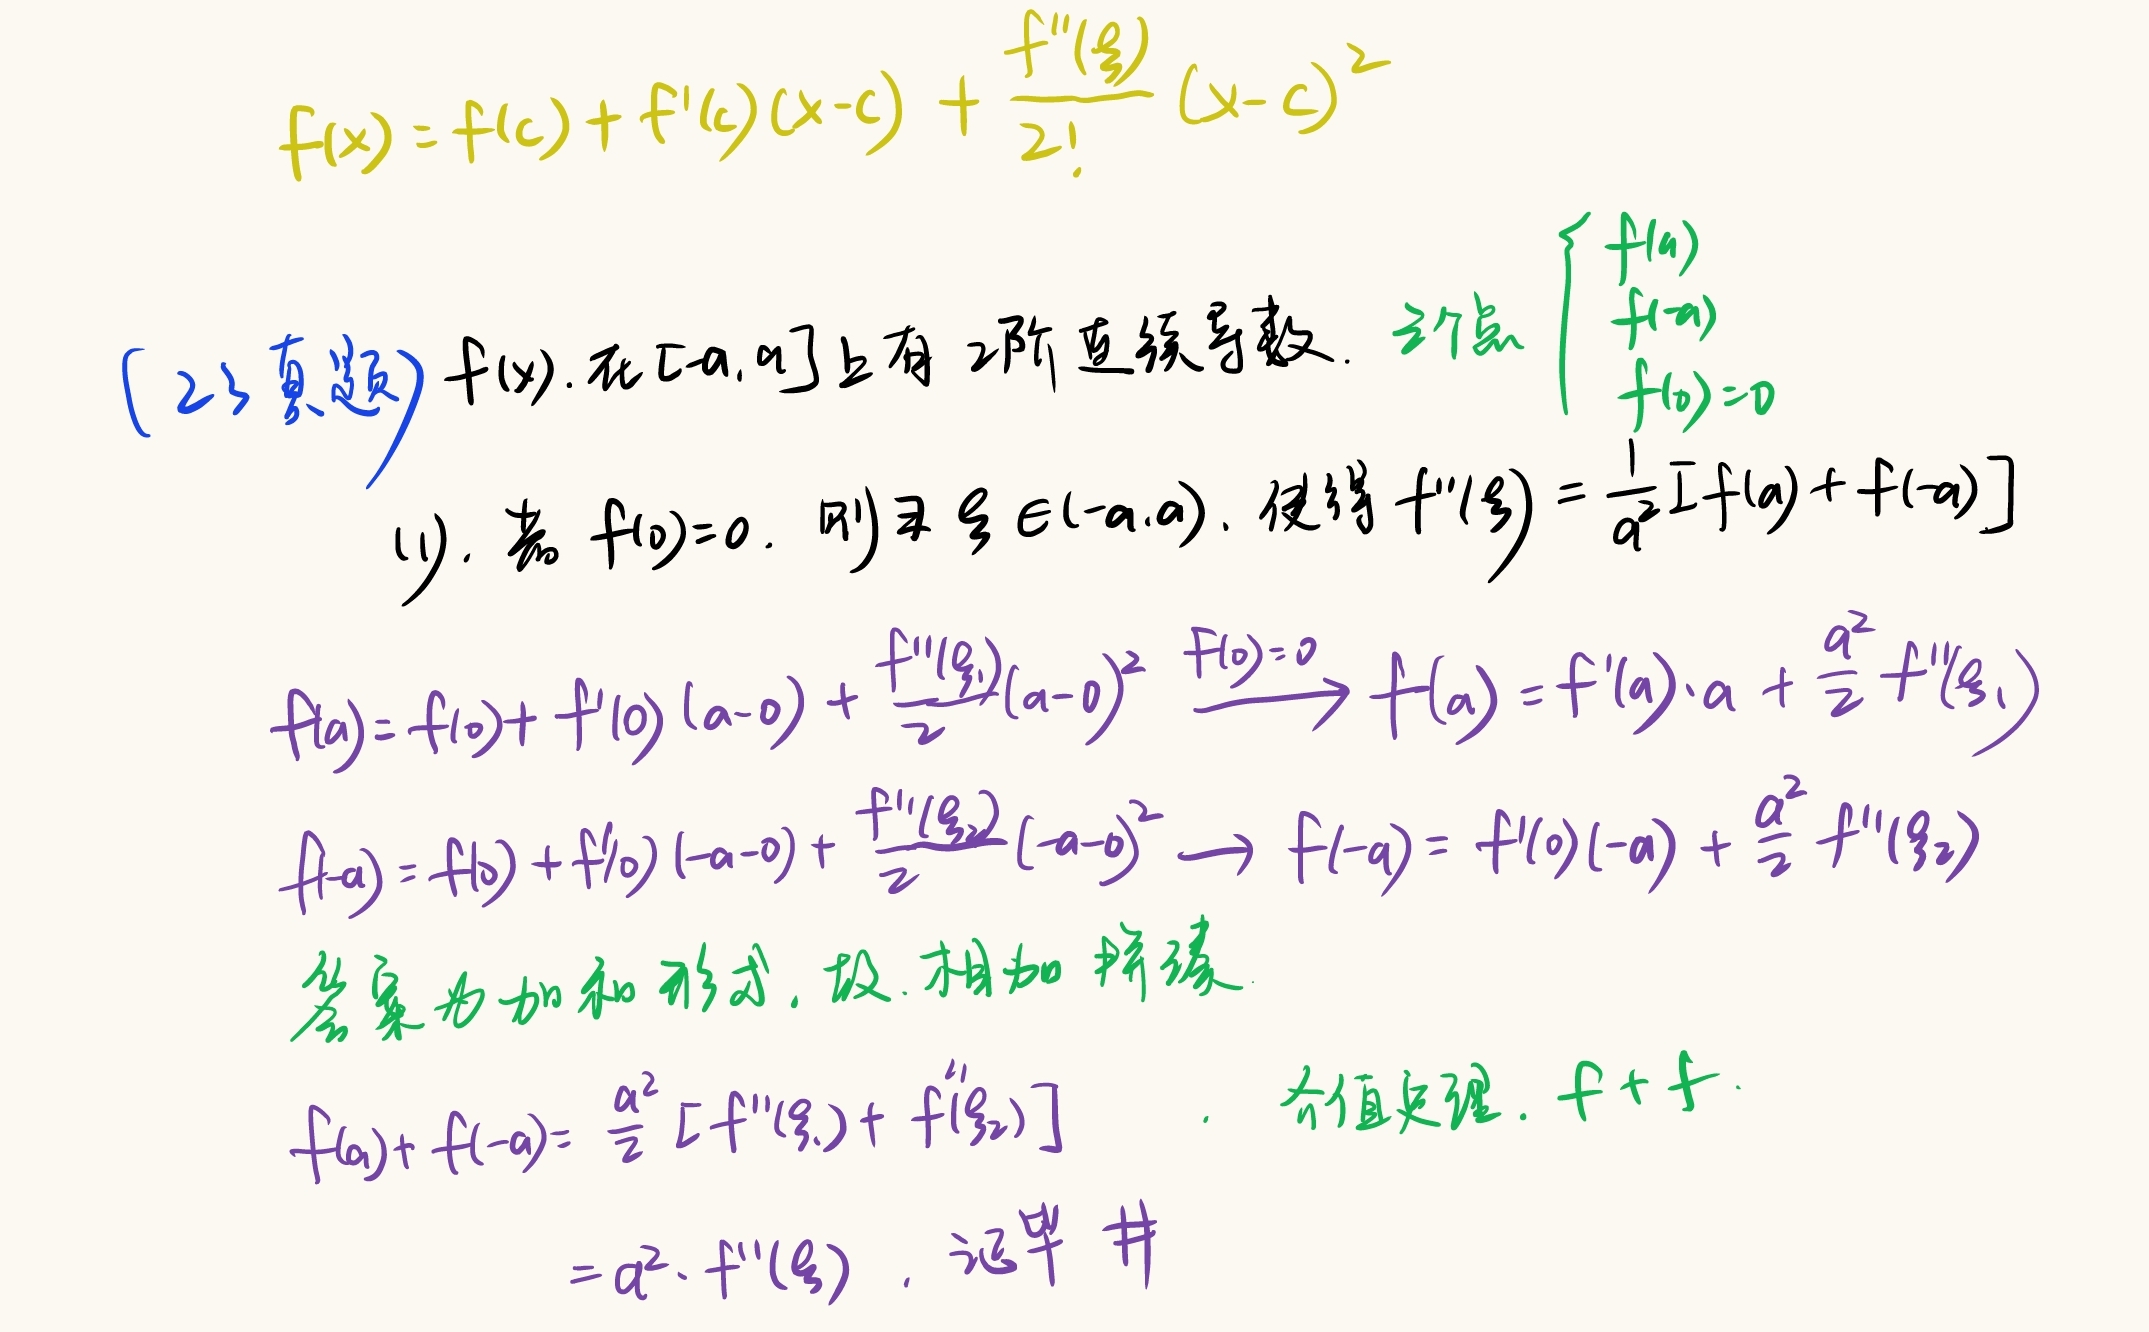 f(x) = f(c) + f'(c)(x-c) + f''(ξ)/2! (x-c)²
(23真题) f(x). 在[-a,a]上有2阶连续导数. 三个点 { f(a)
f(-a)
f(0)=0
(1). 若 f(0)=0. 则∃ξ∈(-a.a). 使得 f''(ξ) = 1/a² [f(a) + f(-a)]
f(a) = f(0) + f'(0)(a-0) + f''(ξ₁)/2 (a-0)² f(0)=0 → f(a) = f'(a)·a + a²/2 f''(ξ₁)
f(-a) = f(0) + f'(0)(-a-0) + f''(ξ₂)/2 (-a-0)² → f(-a) = f'(0)(-a) + a²/2 f''(ξ₂)
答案为加和形式. 故. 相加拼凑.
f(a) + f(-a) = a²/2 [f''(ξ₁) + f''(ξ₂)] . 介值定理. f + f.
= a²· f''(ξ) . 证毕 #